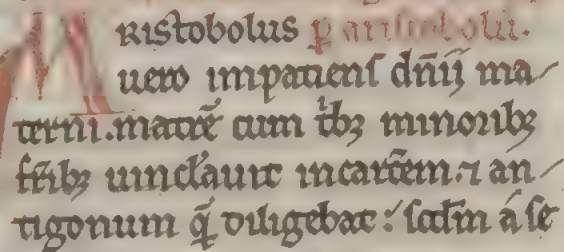 ARistobolus p̲ aristoboli.
uero impatiens dñij ma/
terni. matrē cum tͥbꝫ minoribꝫ
fr̄ibꝫ uincl̓auit incarcēm. ⁊ an/
tigonum q̄ diligebat: scd̓m á se